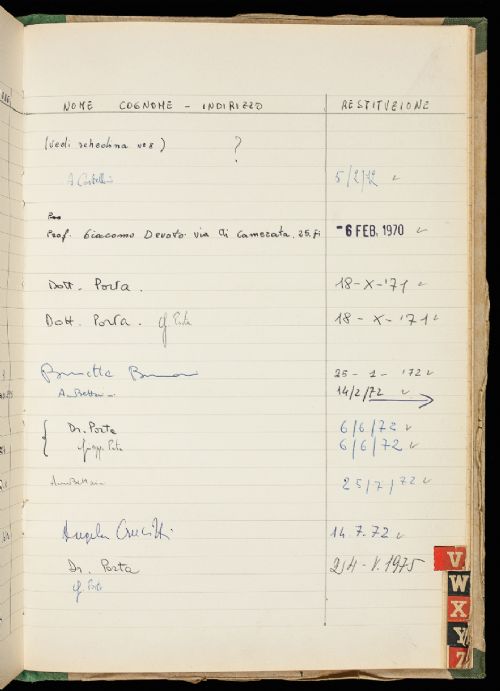 NOME COGNOME - INDIRIZZO RESTITUZIONE
(vedi schedina nº 8) ?
5/2/72
Prof. Giacomo Devoto via di Camerata, 25. Fi -6 FEB. 1970
Dott. Porta. 18-X-'71
Dott. Porta. 18-X-'71
25-1-'72
A. Bettarini 14/2/72
Dr. Porta 6/6/72
Porta 6/6/72
Anna Bettarini 25/7/72
Angela 14.7.72
Dr. Porta 24-V.1975
V
W
X
Y
Z